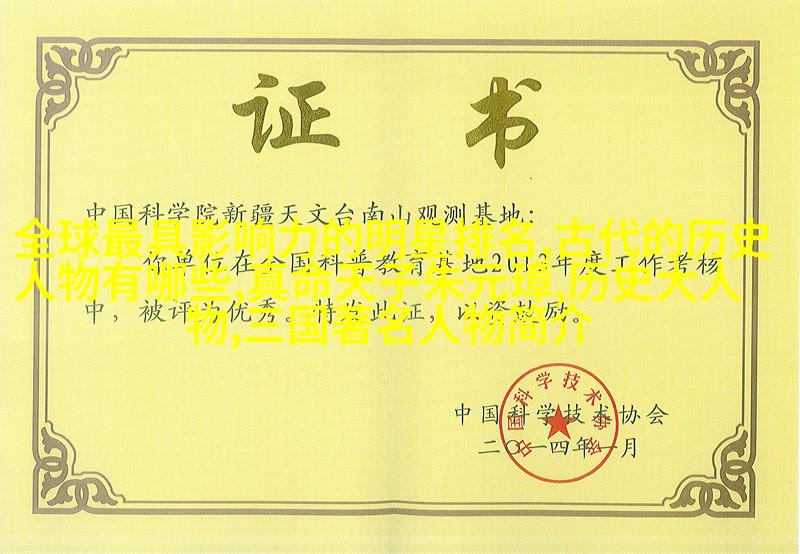 证书
中国科学院新疆天文台南山观测基地:
全球最具影响力的明星排名,古代的历史
你单位在全国科普教育基地2013年度工作考核
人物有哪些,真命天子朱元璋,历史大人
中，被评为优秀。特发此证，以资鼓励。
物,三国著名人物简介
中国科学技术协会
二〇一四年一月
中国科学技术协会